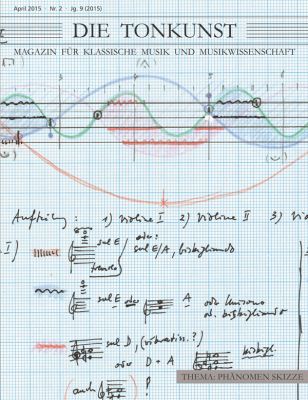 April 2015 · Nr. 2 · Jg. 9 (2015)
DIE TONKUNST
MAGAZIN FÜR KLASSISCHE MUSIK UND MUSIKWISSENSCHAFT
0 1 2 3 4 5 6 7
Aufteilung: 1) Violine I 2) Violine II 3) Vio
I)
sul E oder: sul E/A, bisbigliando
tremolo
sul E oder A oder unisono
od. bisbigliando
sul D, (vibratiss.?)
oder D + A bisbigl.
auch !
THEMA: PHÄNOMEN SKIZZE